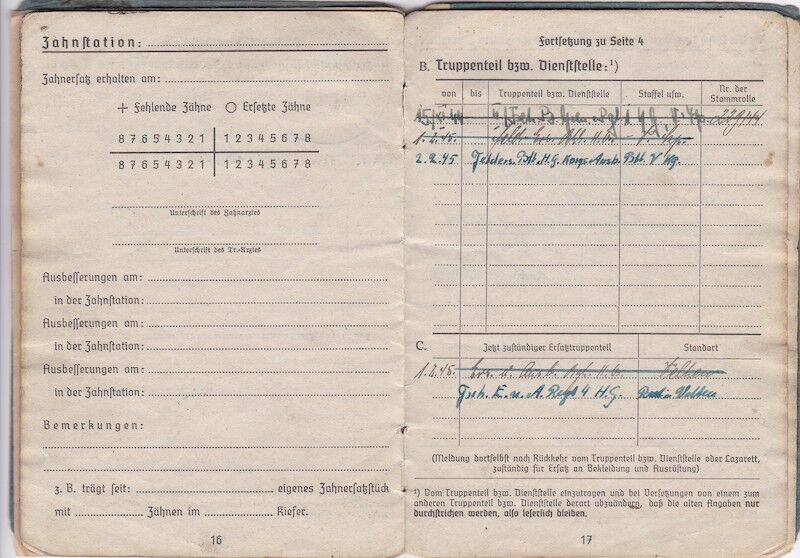 Zahnstation:
Zahnersatz erhalten am:
+ Fehlende Zähne ○ Ersetzte Zähne
8 7 6 5 4 3 2 1 | 1 2 3 4 5 6 7 8
8 7 6 5 4 3 2 1 | 1 2 3 4 5 6 7 8
Unterschrift des Zahnarztes
Unterschrift des Tr.-Arztes
Ausbesserungen am:
in der Zahnstation:
Ausbesserungen am:
in der Zahnstation:
Ausbesserungen am:
in der Zahnstation:
Bemerkungen:
z. B. trägt seit: eigenes Zahnersatzstück
mit Zähnen im Kiefer.
16
Fortsetzung zu Seite 4
B. Truppenteil bzw. Dienststelle:¹)
von bis Truppenteil bzw. Dienststelle Staffel usw. Nr. der Stammrolle
15.XI.44
1.2.45.
2.2.45 H.G. Korps
C. Jetzt zuständiger Ersatztruppenteil Standort
1.2.45. Velten
Fsch. E. u. A. Regt 4 H.G. Berlin Velten
(Meldung dortselbst nach Rückkehr vom Truppenteil bzw. Dienststelle oder Lazarett,
zuständig für Ersatz an Bekleidung und Ausrüstung)
¹) Vom Truppenteil bzw. Dienststelle einzutragen und bei Versetzungen von einem zum
anderen Truppenteil bzw. Dienststelle derart abzuändern, daß die alten Angaben nur
durchstrichen werden, also leserlich bleiben.
17